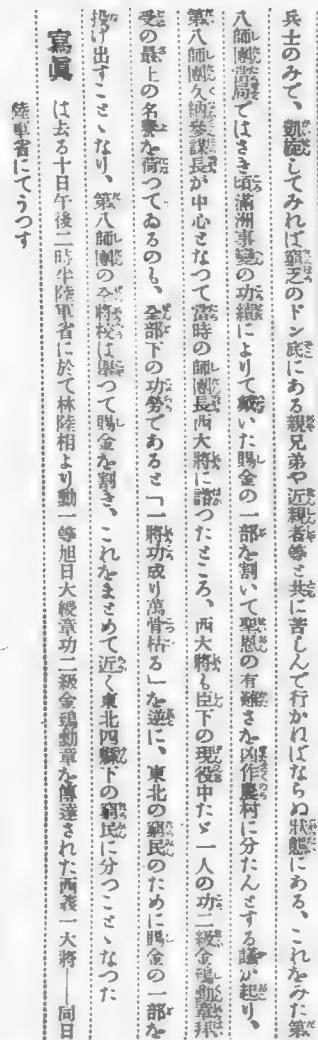 兵士のみで、凱旋してみれば窮乏のドン底にある親兄弟や近親者等と共に苦しんで行かねばならぬ狀態にある、これをみた第
八師團當局ではさき頃滿洲事變の功績によりて戴いた賜金の一部を割いて聖恩の有難さを凶作農村に分たんとする議が起り、
第八師團久納參謀長が中心となつて當時の師團長西大將に諮つたところ、西大將も臣下の現役中たゞ一人の功二級金鵄勳章拜
受の最上の名譽を荷つてゐるのも、全部下の功勞であると「一將功成り萬骨枯る」を逆に、東北の窮民のために賜金の一部を
投げ出すこととなり、第八師團の全將校は擧つて賜金を割き、これをまとめて近く東北四縣下の窮民に分つことゝなつた
寫眞 は去る十日午後二時半陸軍省に於て林陸相より勳一等旭日大綬章功二級金鵄勳章を傳達された西義一大將――同日
陸軍省にてうつす